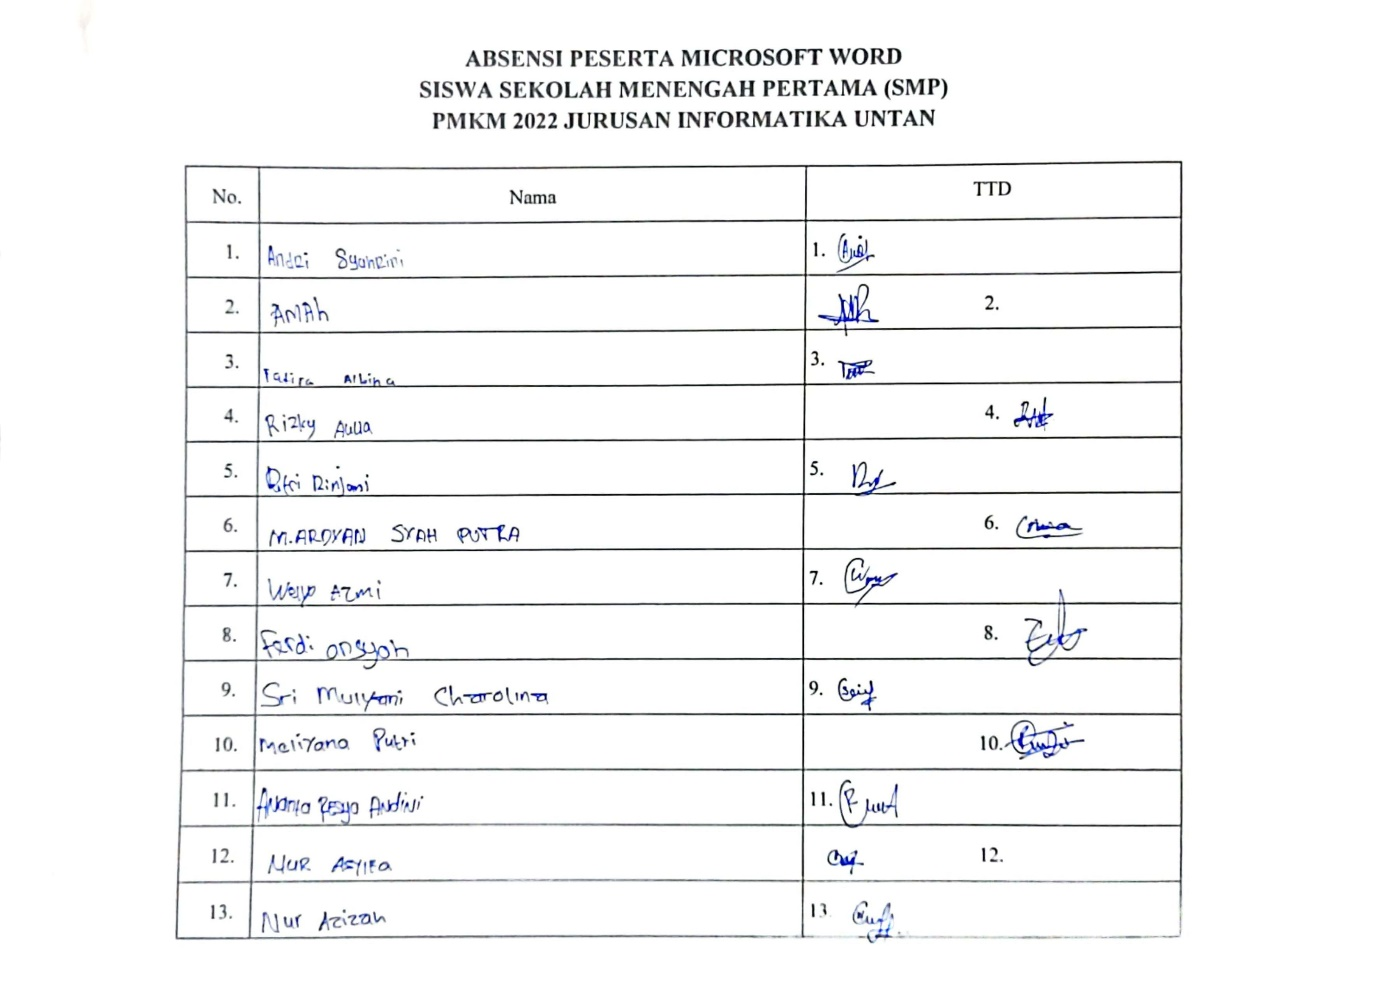 ABSENSI PESERTA MICROSOFT WORD
SISWA SEKOLAH MENENGAH PERTAMA (SMP)
PMKM 2022 JURUSAN INFORMATIKA UNTAN
No. Nama TTD
1. Andri Syahrini 1.
2. AMAh 2.
3. 3.
4. Rizky Aulia 4.
5. Rinjani 5.
6. M.ARDYAN SYAH PUTRA 6.
7. AZMi 7.
8. Ferdi ansyah 8.
9. Sri Mulyani Charolina 9.
10. Meliyana Putri 10.
11. Andini 11.
12. NUR 12.
13. Nur Azizah 13.